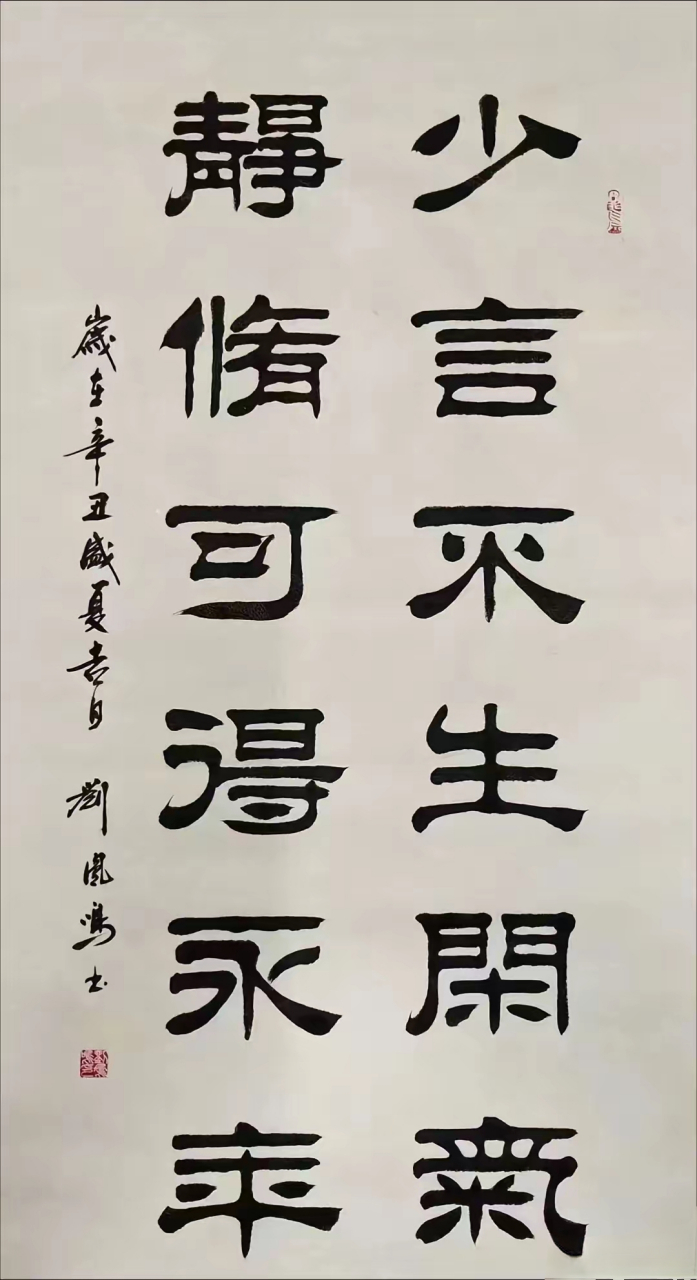 少言不生閑氣
靜脩可得永年
歲在辛丑盛夏吉日 劉鳳鳴書